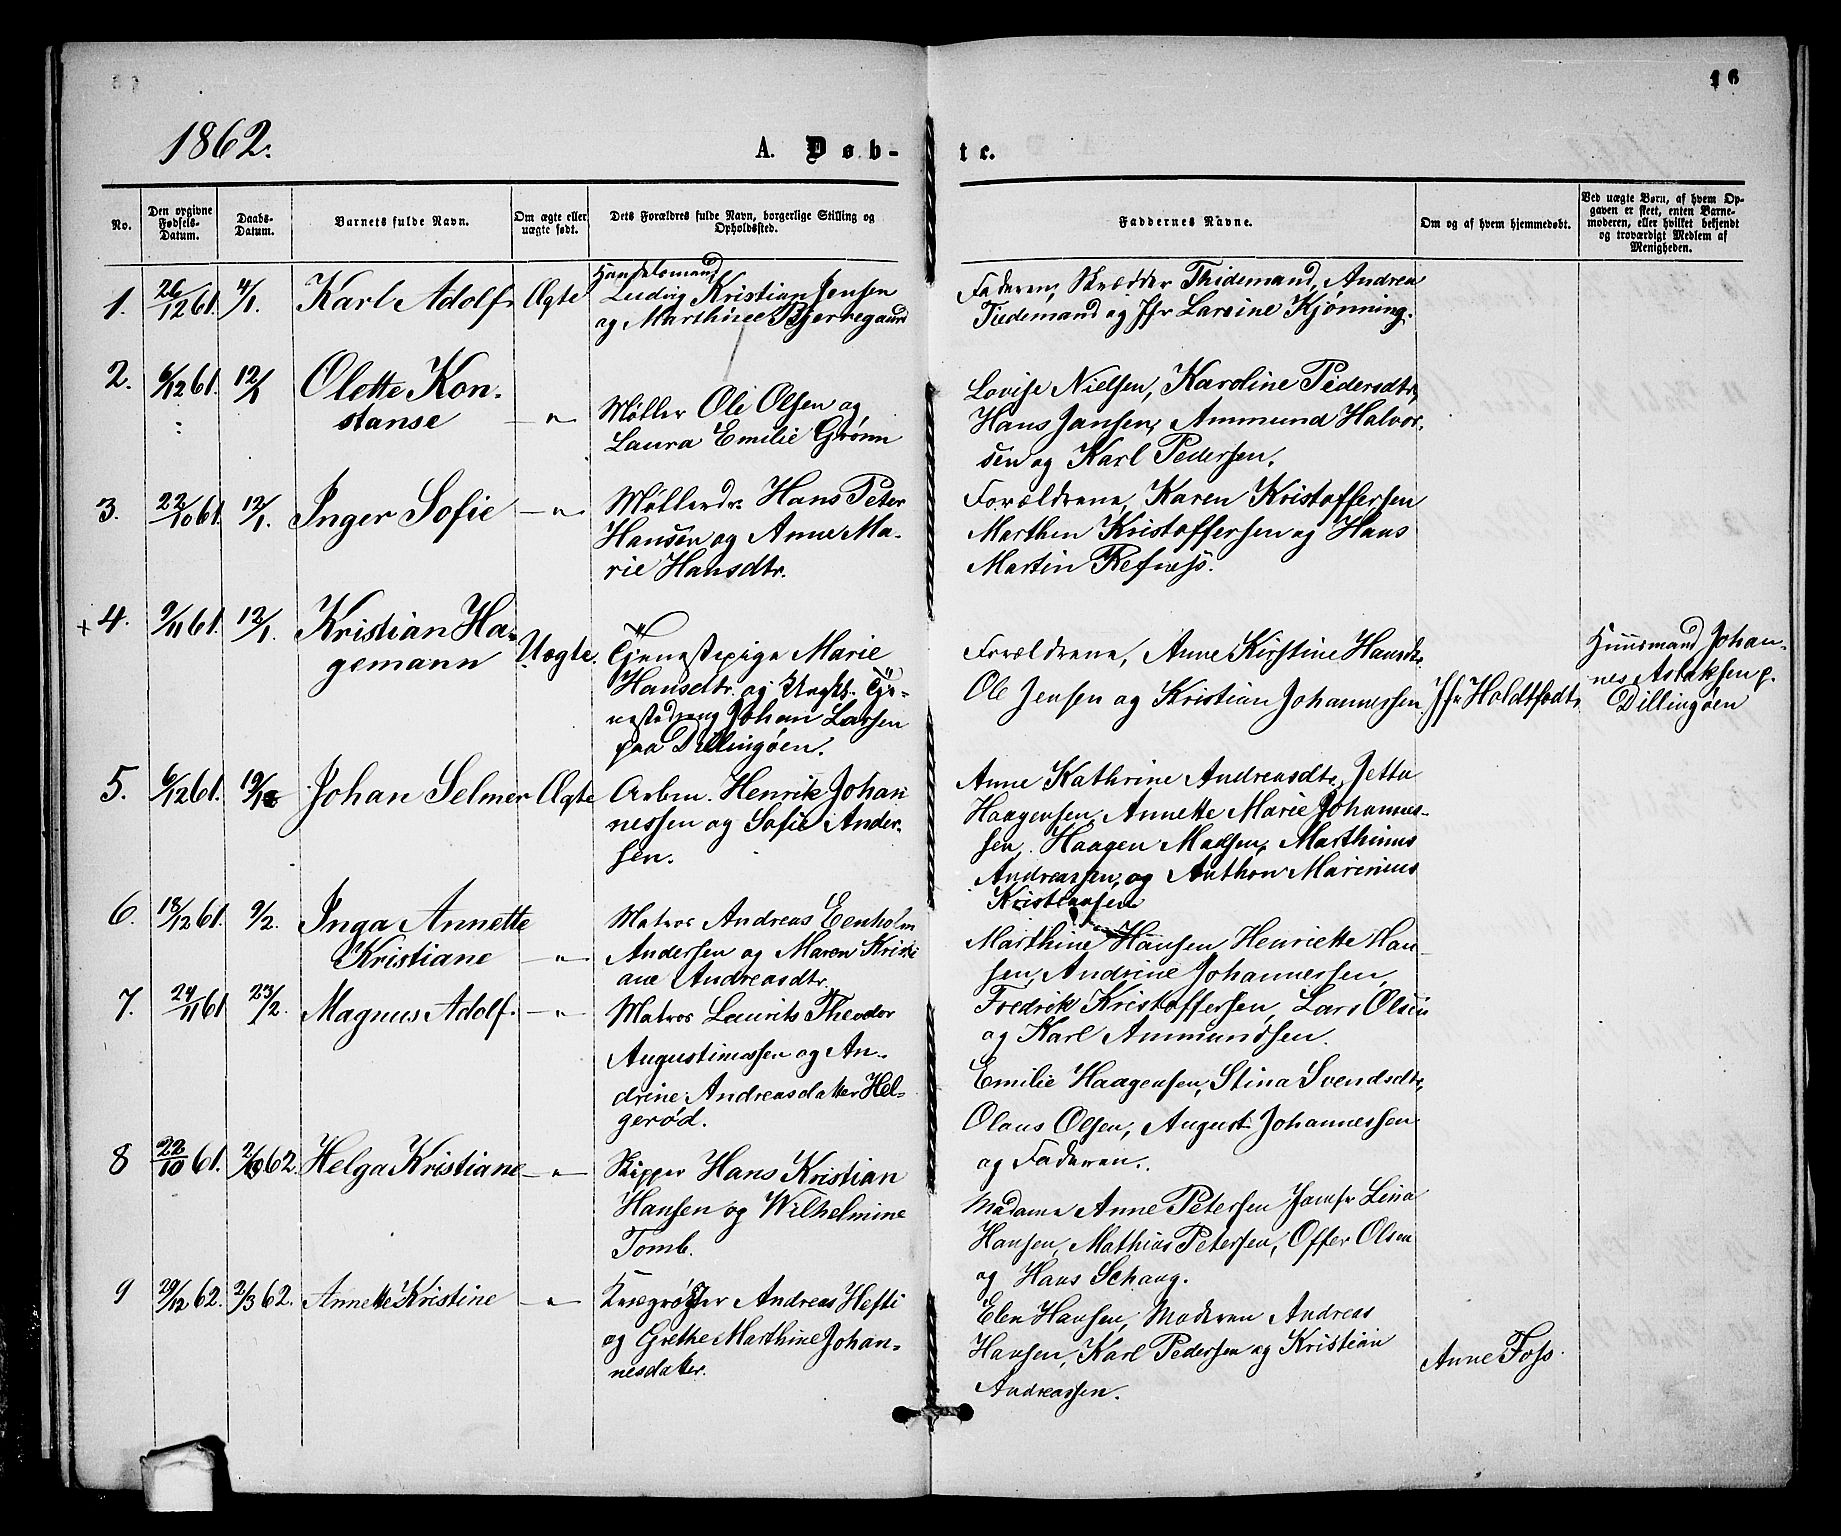 16
1862.
A. Døb-
te.
No.
Den opgivne Fødsels-Datum.
Daabs-Datum.
Barnets fulde Navn.
Om ægte eller uægte født.
Dets Forældres fulde Navn, borgerlige Stilling og Opholdssted.
Faddernes Navne.
Om og af hvem hjemmedøbt.
Ved uægte Børn, af hvem Op-
gaven er skett, enten Barne-
moderen, eller hvilket bekjendt
og troværdigt Medlem af
Menigheden.
1. 26/12 61. 4/1. Karl Adolf Ægte
Handelsmand
Ludvig Kristian Jensen
og Marthine Bjernegaard
Faderen, Skrædder Thidemand, Andrea
Tidemand og Jfr Larsine Kjønning.
2. 6/12 61. 12/1 Olette Kon-
stanse — " —
Møller Ole Olsen og
Laura Emilie Grønn
Lovise Nielsen, Karoline Pedersdtr,
Hans Jansen, Ammund Halvor-
sen og Karl Pedersen.
3. 22/10 61. 12/1. Inger Sofie — " —
Møllerdr. Hans Peter
Hansen og Anne Ma-
rie Hansdtr.
Forældrene, Karen Kristoffersen
Marthin Kristoffersen og Hans
Martin Refnæs.
+ 4. 9/11 61. 12/1. Kristian Ha-
gemann Uægte.
Tjenestepige Marie
Hansdtr. og Ungkl. Tje-
nestedreng Johan Larsen
paa Dillingøen.
Forældrene, Anne Kirstine Hansdtr.
Ole Jensen og Kristian Johannessen
Jfr Holdtfodt
Huusmand Johan-
nes Aslaksen p.
Dillingøen
5. 6/12 61. 19/1 Johan Selmer Ægte
Arbm. Henrik Johan
nessen og Sofie Ander-
sen.
Anne Kathrine Andreasdtr, Jetta
Haagensen, Annette Marie Johannes-
sen, Haagen Madsen, Marthinus
Andreassen, og Anthon Marinius
Kristiansen
6. 18/12 61. 9/2. Inga Annette
Kristiane — " —
Matros Andreas Eenholm
Andersen og Maren Kristi
ane Andreasdtr.
Marthine Hansen Henriette Han-
sen, Andrine Johannessen,
Fredrik Kristoffersen, Lars Olsen
og Karl Ammundsen.
7. 24/11 61 23/2. Magnus Adolf. — " —
Matros Laurits Theodor
Augustinussen og An-
drine Andreasdatter Hel-
gerød.
Emilie Haagensen, Stina Svendsdtr,
Olaus Olsen, August Johannessen
og Faderen.
8 22/10 61. 2/3 62. Helga Kristiane — " —
Skipper Hans Kristian
Hansen og Wilhelmine
Tomb.
Madame Anne Petersen Jomfr Lina
Hansen, Mathias Petersen, Offer Olsen
og Hans Schaug.
9 29/12 62. 2/3 62. Annette Kristine — " —
Andreas Hefti
og Grethe Marthine Johan-
nesdatter.
Elen Hansen, Moderen Andreas
Hansen, Karl Pedersen og Kristian
Andreassen.
Anne Foss.